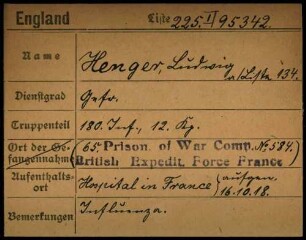 England Liste 225.I/95342.
Name Henger, Ludwig
a/Liste 134.
Dienstgrad Gefr.
Truppenteil 180. Inf., 12. Kp.
Ort der Gefangennahme (65. Prison. of War Comp. No. 584.
British Expedit. Force France)
Aufenthaltsort Hospital in France) aufgen.
16.10.18.
Bemerkungen Influenza.